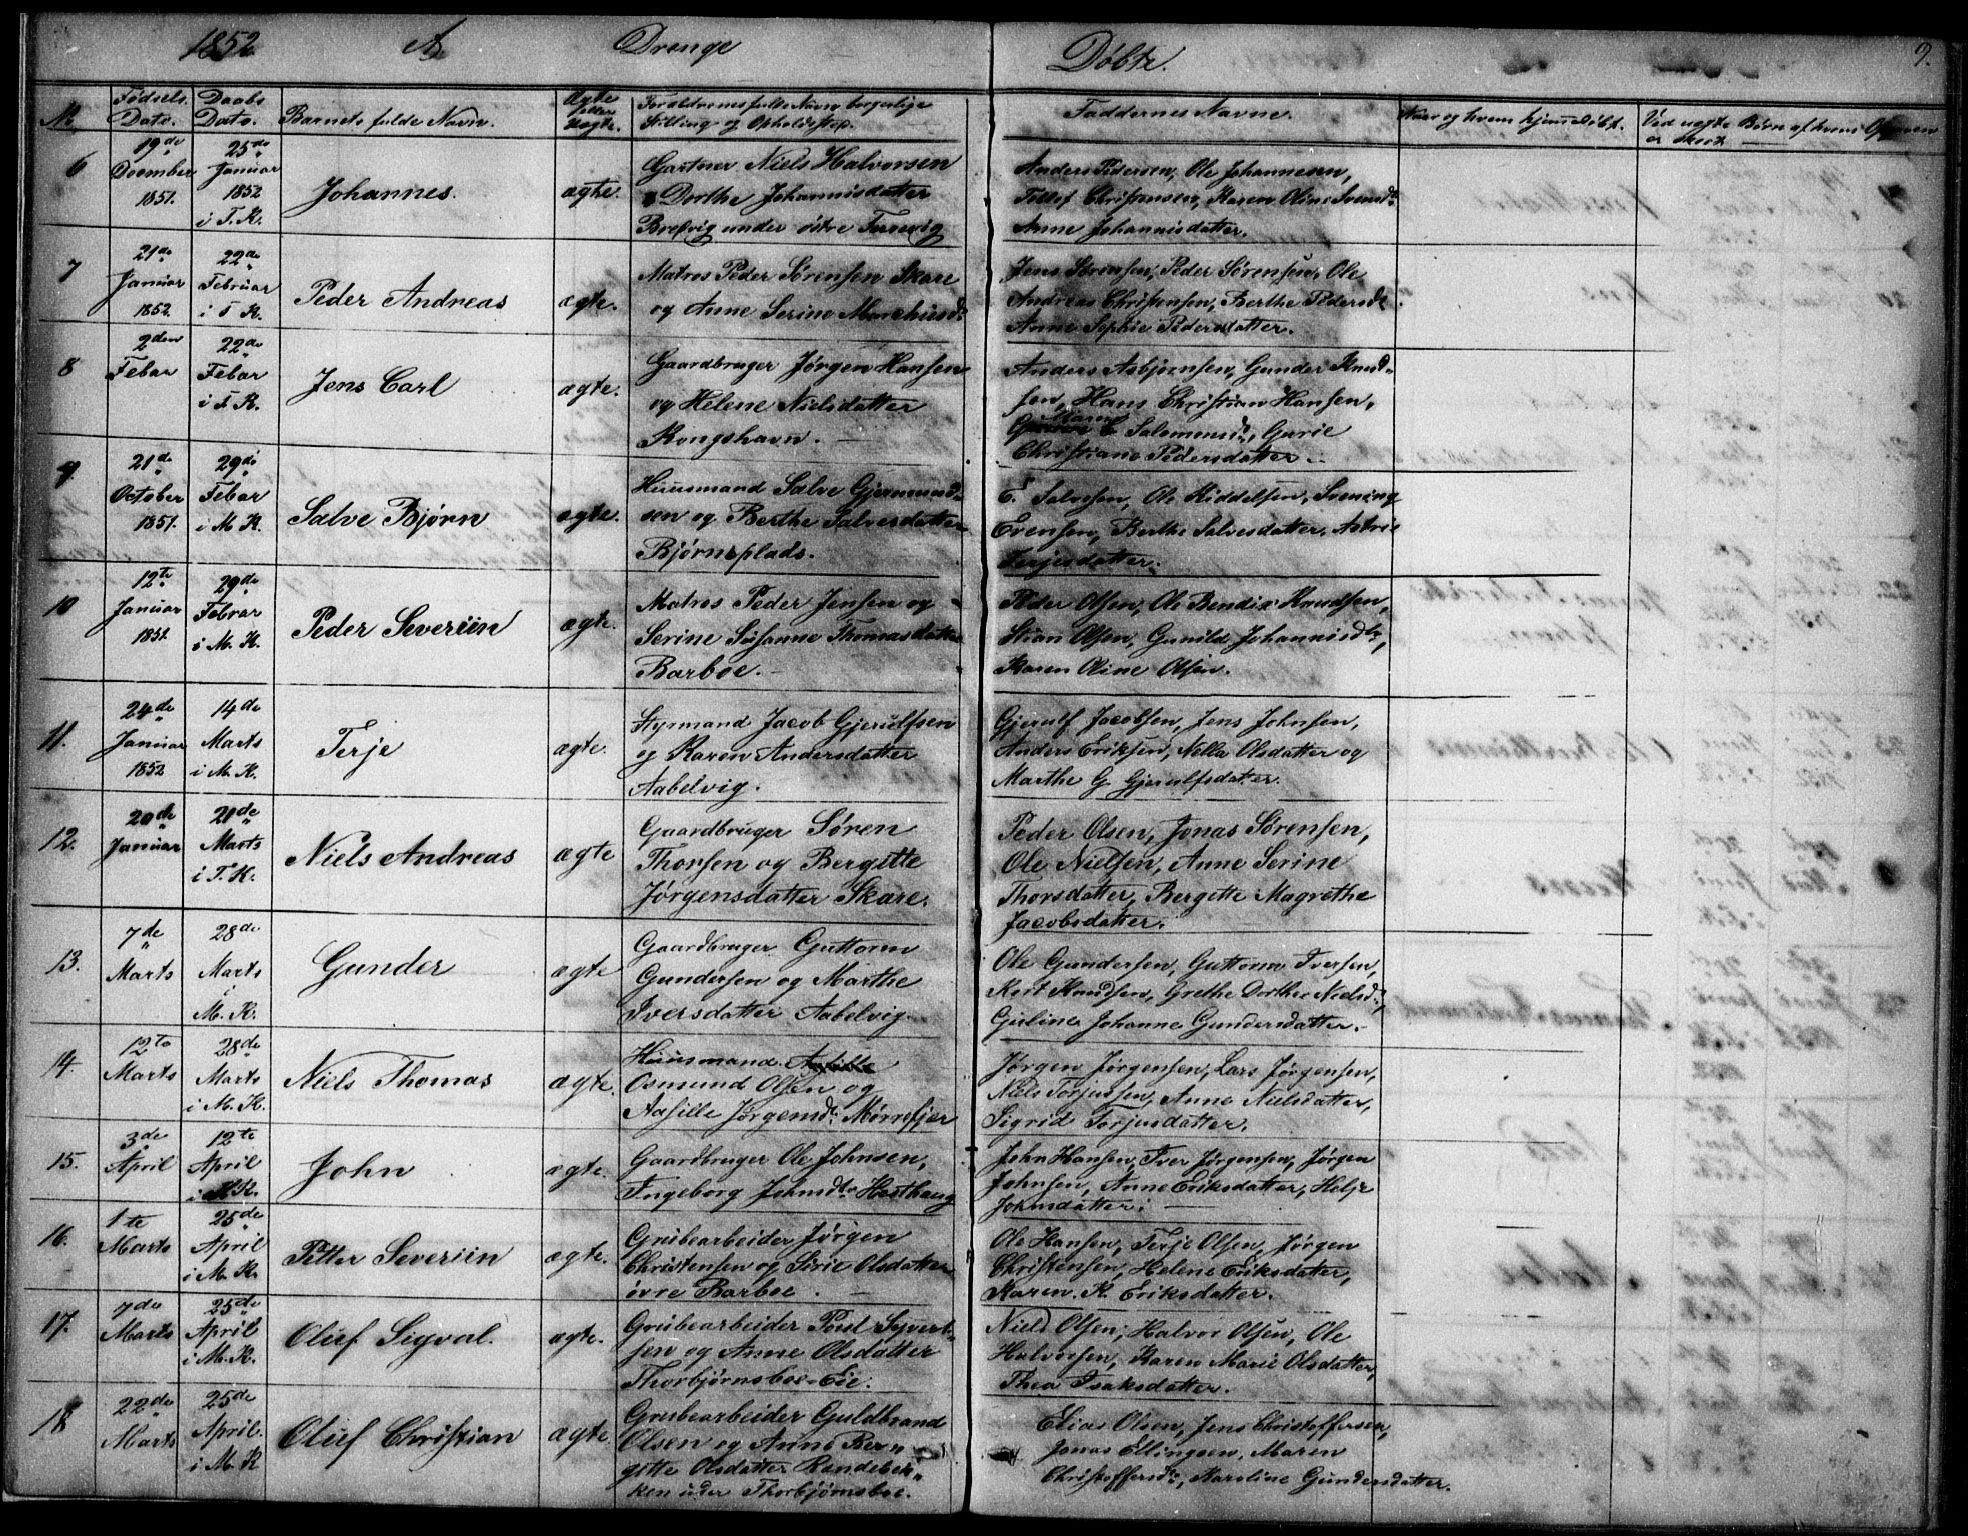 1852 A. Drenge Døbte. 9.
No. Fødsels Dato. Daabs Dato. Barnets fulde Navn. Ægte eller Uægte. Forældrenes fulde Navn borgerlige Stilling og Opholdssted. Faddernes Navne. Naar og hvem hjemmedøbt. Ved uægte Børn af hvem Opgaven er skeet
6 19de December 1851. 25de Januar 1852 i T. K. Johannes. ægte.
Gartner Niels Halvorsen
Dorthe Johannisdatter
Brekvig under østre Tervevig
Anders Pedersen, Ole Johannesen,
Tellef Christensen, Karen Oline Svensdr
Anne Johannisdatter.
7 21de Januar 1852. 22de Februar i T K. Peder Andreas ægte.
Matros Peder Sørensen Skare
og Anne Serine Marchusdr
Jens Sørensen, Peder Sørensen, Ole
Andreas Christensen, Berthe Pedersdr
Anne Sophie Pedersdatter.
8 2den Febar 22de Febar i T. K. Jens Carl ægte.
Gaardbruger Jørgen Hansen
og Helene Nielsdatter
Kongshavn. —
Anders Asbjørnsen, Gunder Knud-
sen, Hans Christian Hansen,
Maren Salomonsdr, Gurie
Christiane Pedersdatter.
9. 21de October 1851. 29de Febar i M. K. Salve Bjørn ægte.
Huusmand Salve Gjermund-
sen og Berthe Salvesdatter
Bjørnsplads.
E. Salvesen, Ole Kiddelsen, Svening
Evensen, Berthe Salvesdatter, Astrie
Terjesdatter.
10 12te Januar 1852. 29de Febrar i M. K. Peder Severiin ægte.
Matros Peder Jensen og
Serine Susanne Thomasdatter
Barboe. -
Peder Olsen, Ole Bendix Knudsen,
Stian Olsen, Gunild Johannisdtr,
Karen Oline Olsen.
11. 24de Januar 1852 14de Marts i M. K. Terje ægte.
Styrmand Jacob Gjerulfsen
og Karen Andersdatter
Aabelvig.
Gjerulf Jacobsen, Jens Johnsen,
Anders Eriksen, Nella Olsdatter og
Marthe G. Gjerulfsdatter.
12. 20de Januar 21de Marts i T. K. Niels Andreas ægte
Gaardbruger Søren
Thorsen og Bergitte
Jørgensdatter Skare.
Peder Olsen, Jonas Sørensen,
Ole Nielsen, Anne Serine
Thorsdatter, Bergitte Magrethe
Jacobsdatter.
13. 7de Marts 28de Marts i M. K. Gunder ægte
Gaardbruger Guttorm
Gundersen og Marthe
Iversdatter Aabelvig
Ole Gundersen, Guttorm Iversen,
Kort Knudsen, Grethe Dorthea Nielsdr,
Guline Johanne Gundersdatter.
14. 12te Marts 28de Marts i M. K. Niels Thomas ægte.
Huusmand
Osmund Olsen og
Aasille Jørgensdr Mørrefjær
Jørgen Jørgensen, Lars Jørgensen,
Niels Torjussen, Anne Nielsdatter,
Sigrid Torjusdatter.
15. 3de April 12te April i M K. John ægte.
Gaardbruger Ole Johnsen,
Ingeborg Johnsdr Hesthaug
John Hansen, Iver Jørgensen, Jørgen
Johnsen, Anne Eriksdatter, Helje
Johnsdatter. —
16. 1te Marts 25de April i M. K. Petter Severiin ægte.
Grubearbeider Jørgen
Christensen og Sirie Olsdatter
øvre Barboe. —
Ole Hansen, Terje Olsen, Jørgen
Christensen, Helene Eriksdatter,
Karen. K. Eriksdatter.
17. 7de Marts 25de April i M. K. Oluf Sigval. ægte.
Grubearbeider Poul Syvert-
sen og Anne Olsdatter
Thorbjørnsboe-Eie.
Niels Olsen, Halvor Olsen, Ole
Halvorsen, Karen Marie Olsdatter,
Thea Isaksdatter.
18 22de Marts 25de April. i M. K Oluf Christian ægte
Grubearbeider Guldbrand
Olsen og Anne Ber-
gitte Olsdatter Randebek-
ken under Thorbjørnsboe.
Elias Olsen, Jens Christoffersen,
Jonas Ellingsen, Maren
Christoffersdr, Karoline Gundersdatter.